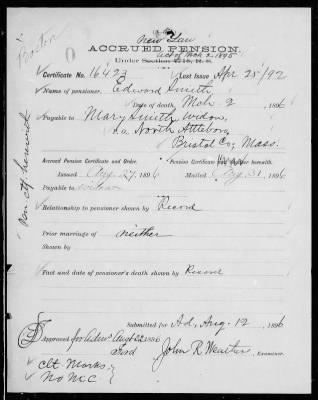 Boston
New Law
ACCRUED PENSION.
Act of Mch 2, 1895
Under Section 4718, R. S.
Certificate No. 16423 Last Issue Apr 25/92
Name of pensioner, Edward Smith
Date of death, Mch 2, 1896
Payable to Mary Smith widow,
North Attleboro,
Bristol Co., Mass.
Accrued Pension Certificate and Order.
Issued Aug 29, 1896
Payable to widow
Pension Certificate herewith.
Mailed Aug 31, 1896
Relationship to pensioner shown by Record
Prior marriage of neither
Shown by
Fact and date of pensioner's death shown by Record
Submitted for Ad, Aug. 12, 1896
Approved for Adms Aug 22 1896
Ford
John R. , Examiner.
Clt Marks
No McC.
Pen ctf herewith